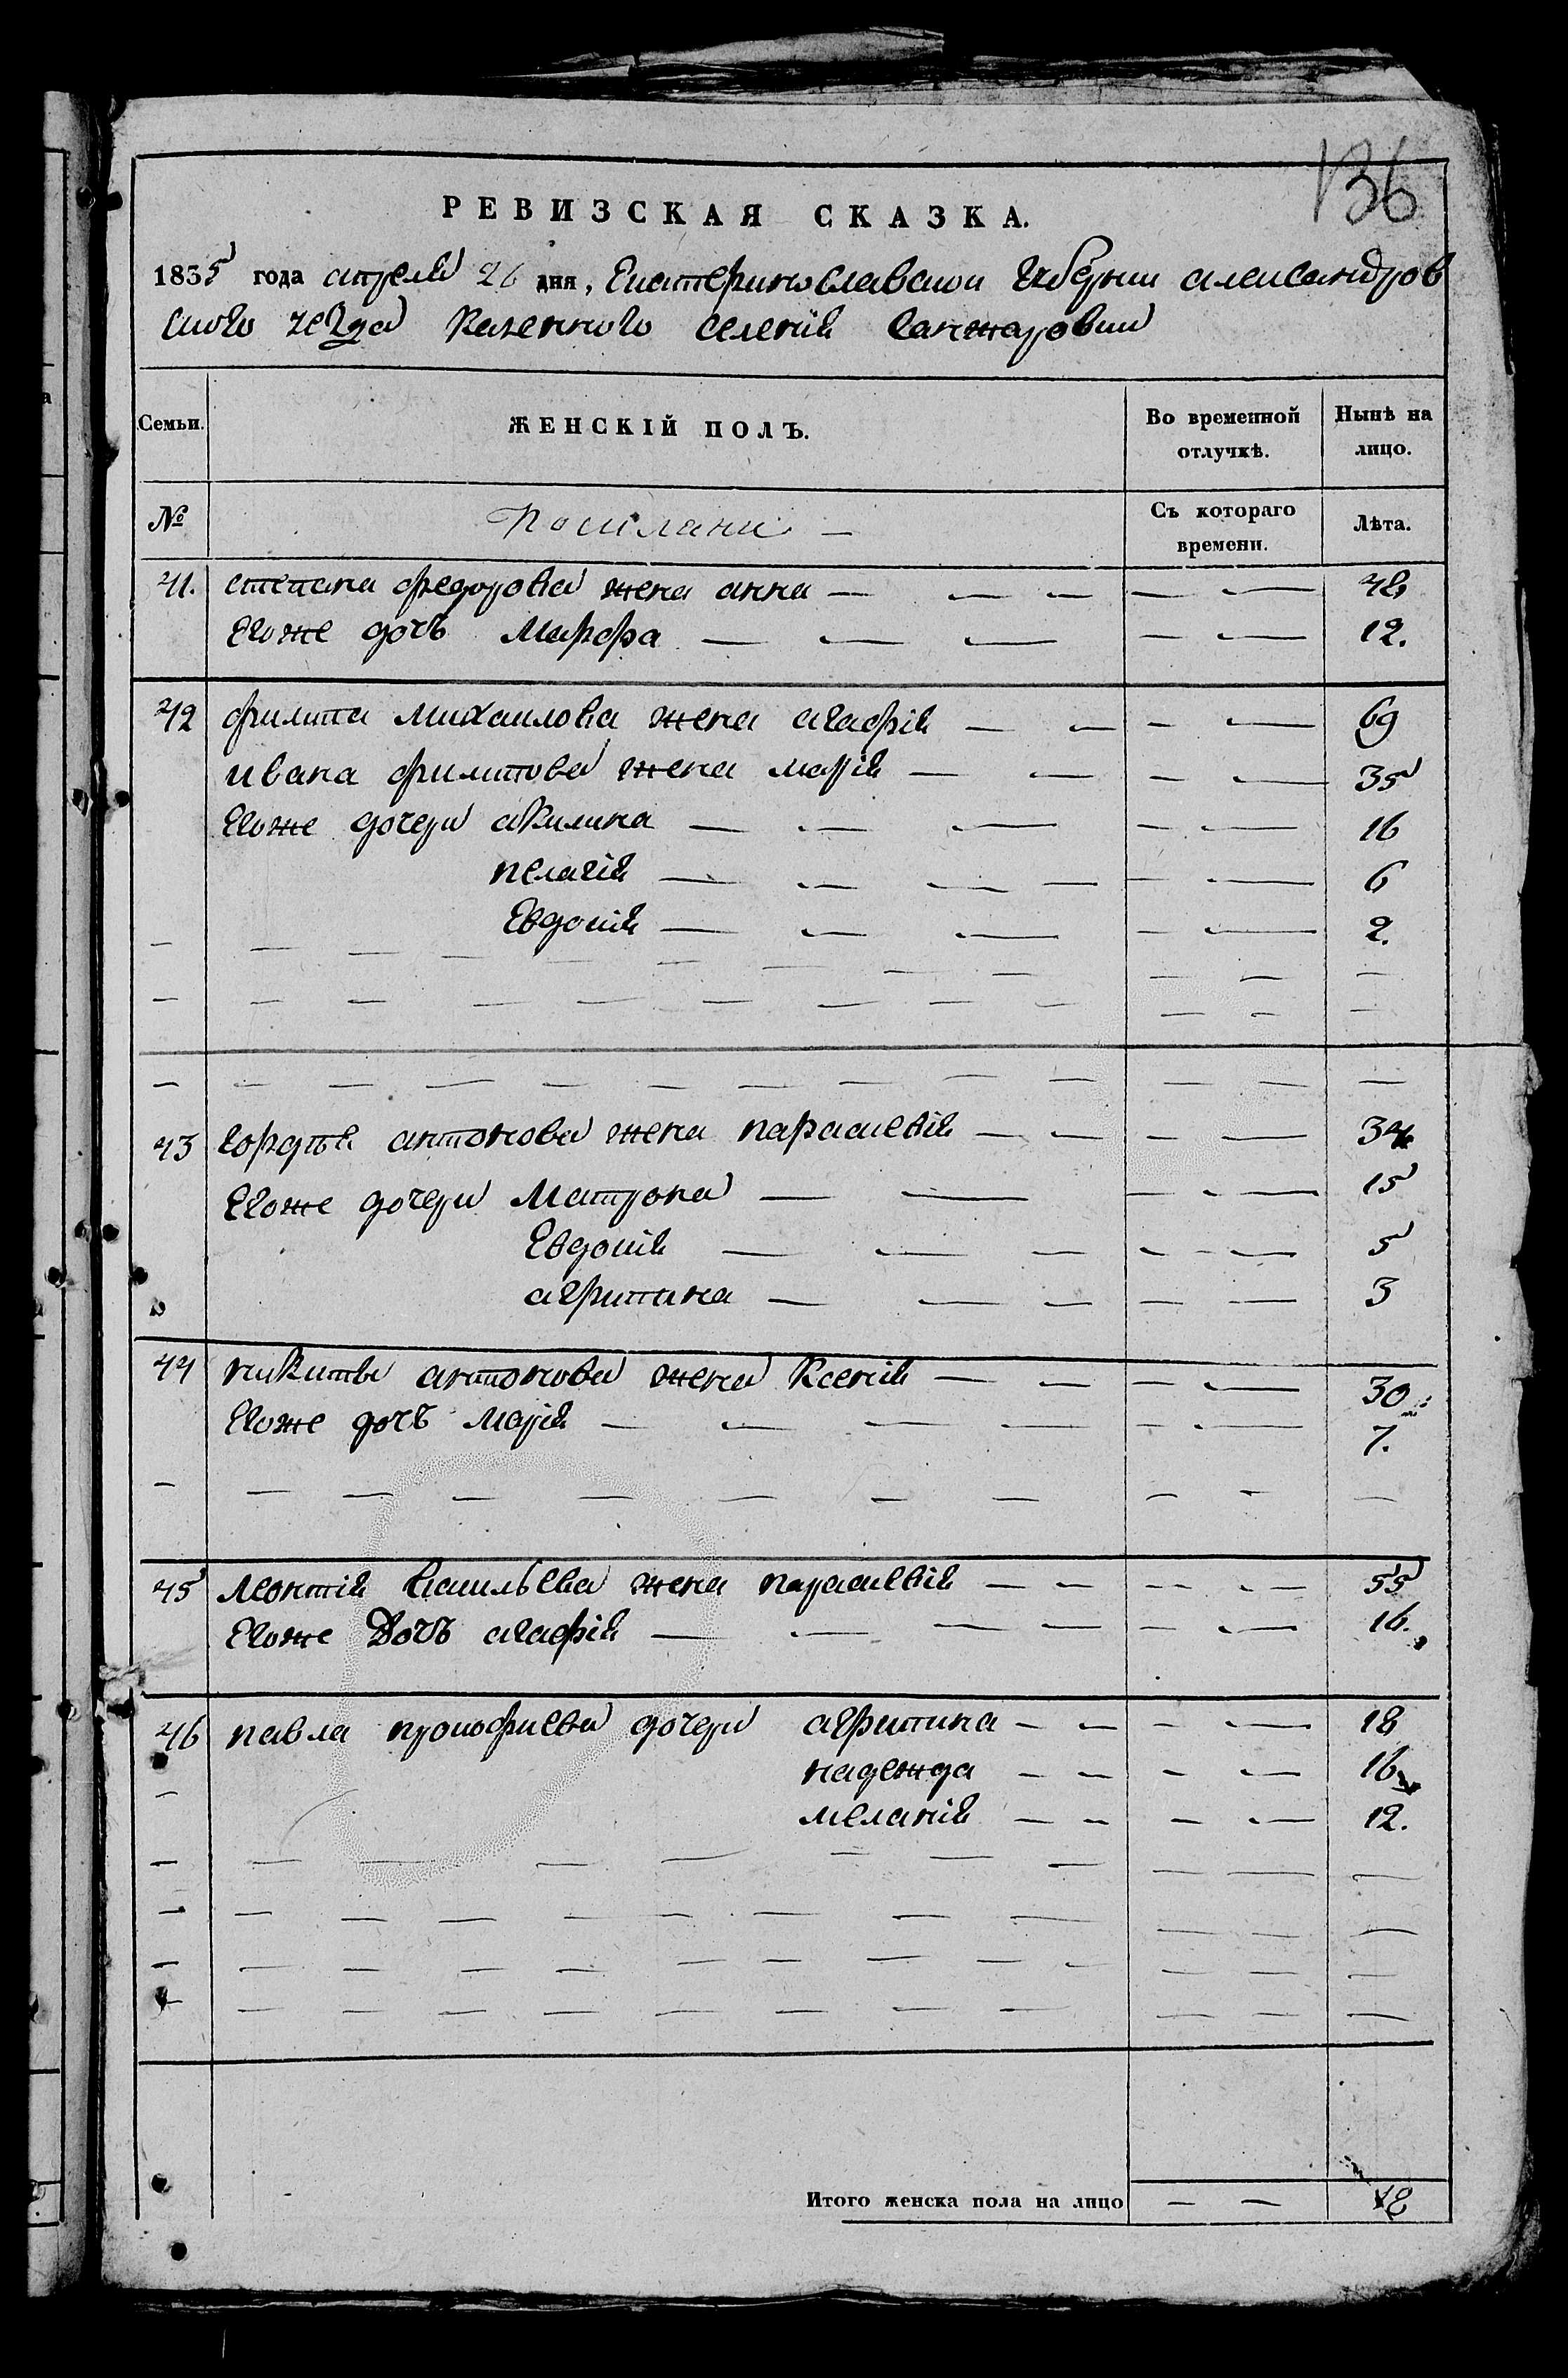 136
РЕВИЗСКАЯ СКАЗКА.
1835 года апреля 26 дня, Екатеринославской губернии александров
ского уезда Казенного селения Санжаровки
Семьи. ЖЕНСКІЙ ПОЛЪ. Во временной отлучкѣ. Нынѣ на лицо.
№ Поселяни — Съ котораго времени. Лѣта.
41. степана федорова жена анна — — — — — 48
Егоже дочь Марфа — — — — — 12.
42 филипа михаилова жена агафія — — — — 69
ивана филипова жена марія — — — — 35
Егоже дочери акилина — — — — — 16
пелагія — — — — — — 6
Евдокія — — — — — 2.
43 гордѣя антонова жена параскевія — — — — 34
Егоже дочери Матрона — — — — — 15
Евдокія — — — — — — 5
агрипина — — — — — 3
44 никиты антонова жена Ксенія — — — — 30
Егоже дочь марія — — — — — — 7.
45 Леонтія васильева жена параскевія — — — — — — 55
Егоже Дочь агафія — — — — — — 16.
46 павла прокофиева дочери агрипина — — — — 18
надежда — — — — 16
меланія — — — — 12.
Итого женска пола на лицо — — 18